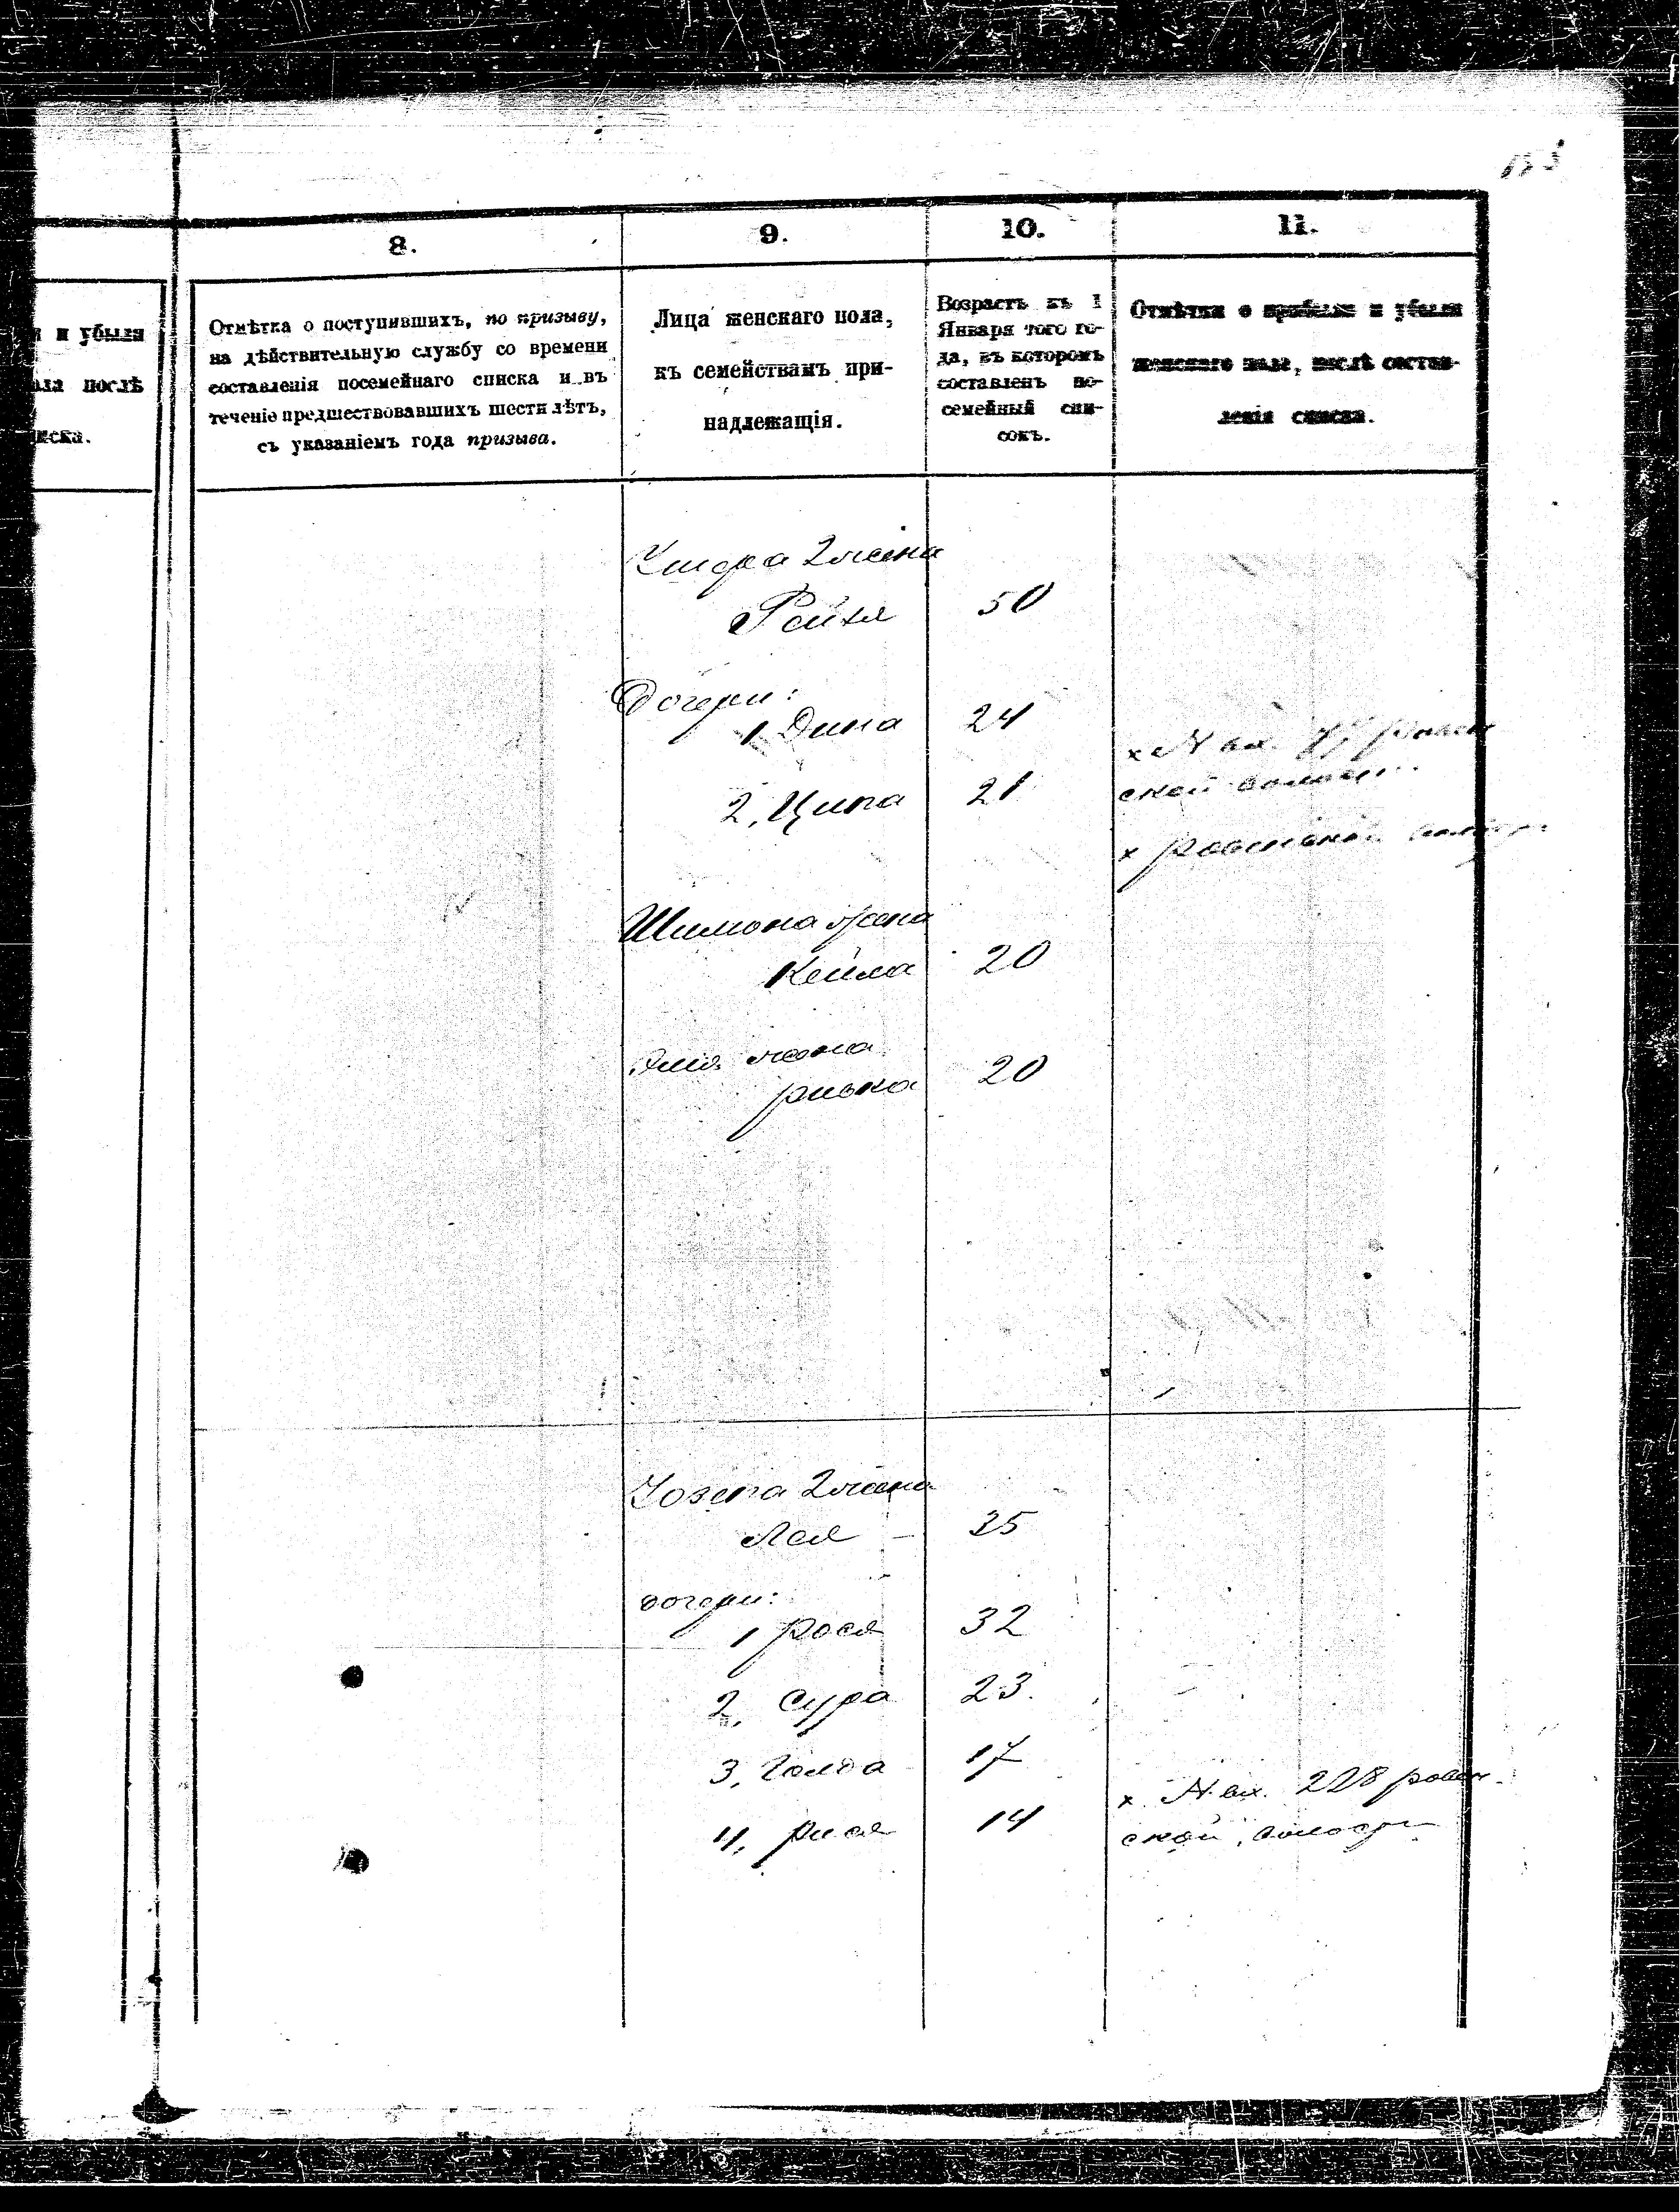 и убыли
ола послѣ
иска.
8.
Отмѣтка о поступившихъ, по призыву,
на дѣйствительную службу со времени
составленія посемейнаго списка и въ
теченіе предшествовавшихъ шести лѣтъ,
съ указаніемъ года призыва.
9.
Лица женскаго пола,
къ семействамъ при-
надлежащія.
10.
Возрастъ къ 1
Января того го-
да, въ которомъ
составленъ по-
семейный спи-
сокъ.
11.
Отмѣтки о прибыли и убыли
женскаго пола, послѣ состав-
ленія списка.
2 жена
Рейзя 50
Дочери:
1 Дина 24
2, Ципа 21
х N вх.
ской
х
Шимона жена
Кейла 20
жена
ривка 20
Іозепа 2 жена
Лея 35
дочери:
1 рося 32
2, Сура 23.
3, Голда 17
4, 14
х. N вх. 228 ровен
ской волости